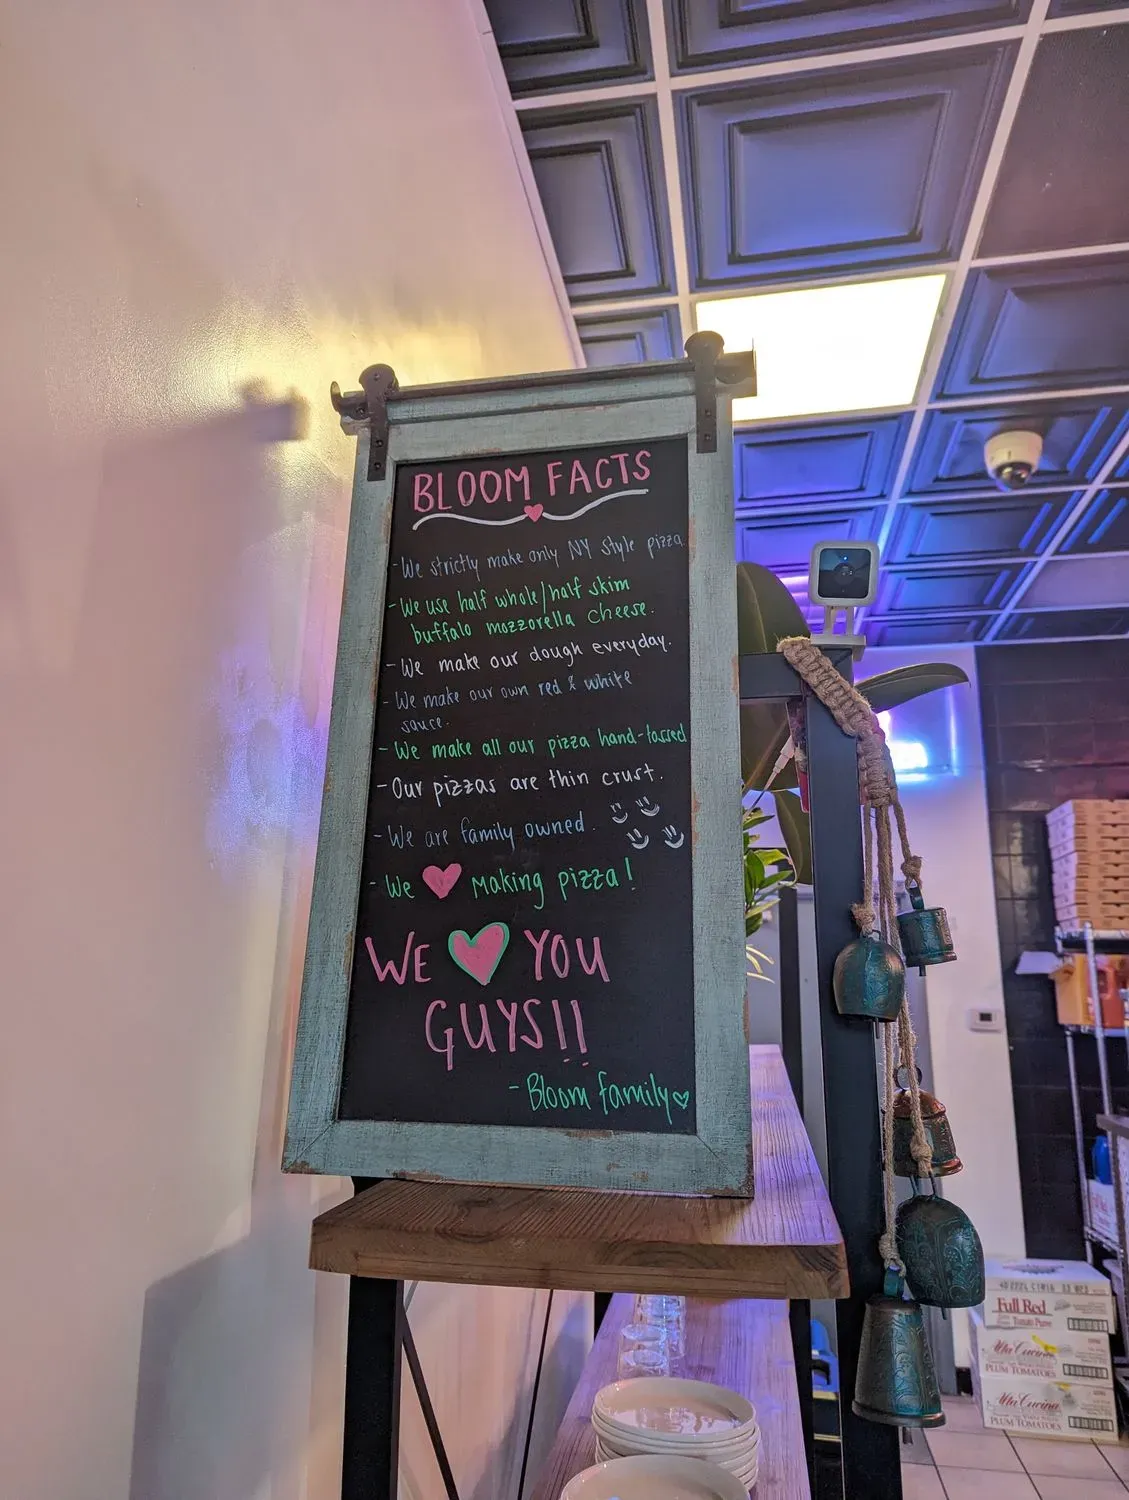 BLOOM FACTS
- We strictly make only NY Style pizza.
- We use half whole/half skim
buffalo mozzorella cheese.
- We make our dough everyday.
- We make our own red & white
sauce.
- We make all our pizza hand-tossed
- Our pizzas are thin crust.
- We are family owned.
- We ♥ making pizza!
WE ♥ YOU
GUYS!!
- Bloom family ♡
Full Red
Tomato Puree
Alta Cucina
PLUM TOMATOES
Alta Cucina
PLUM TOMATOES